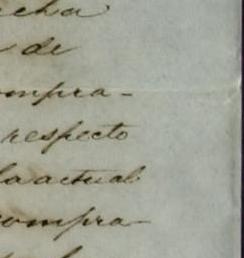 echa
de
ompra-
respecto
la actual
compra-